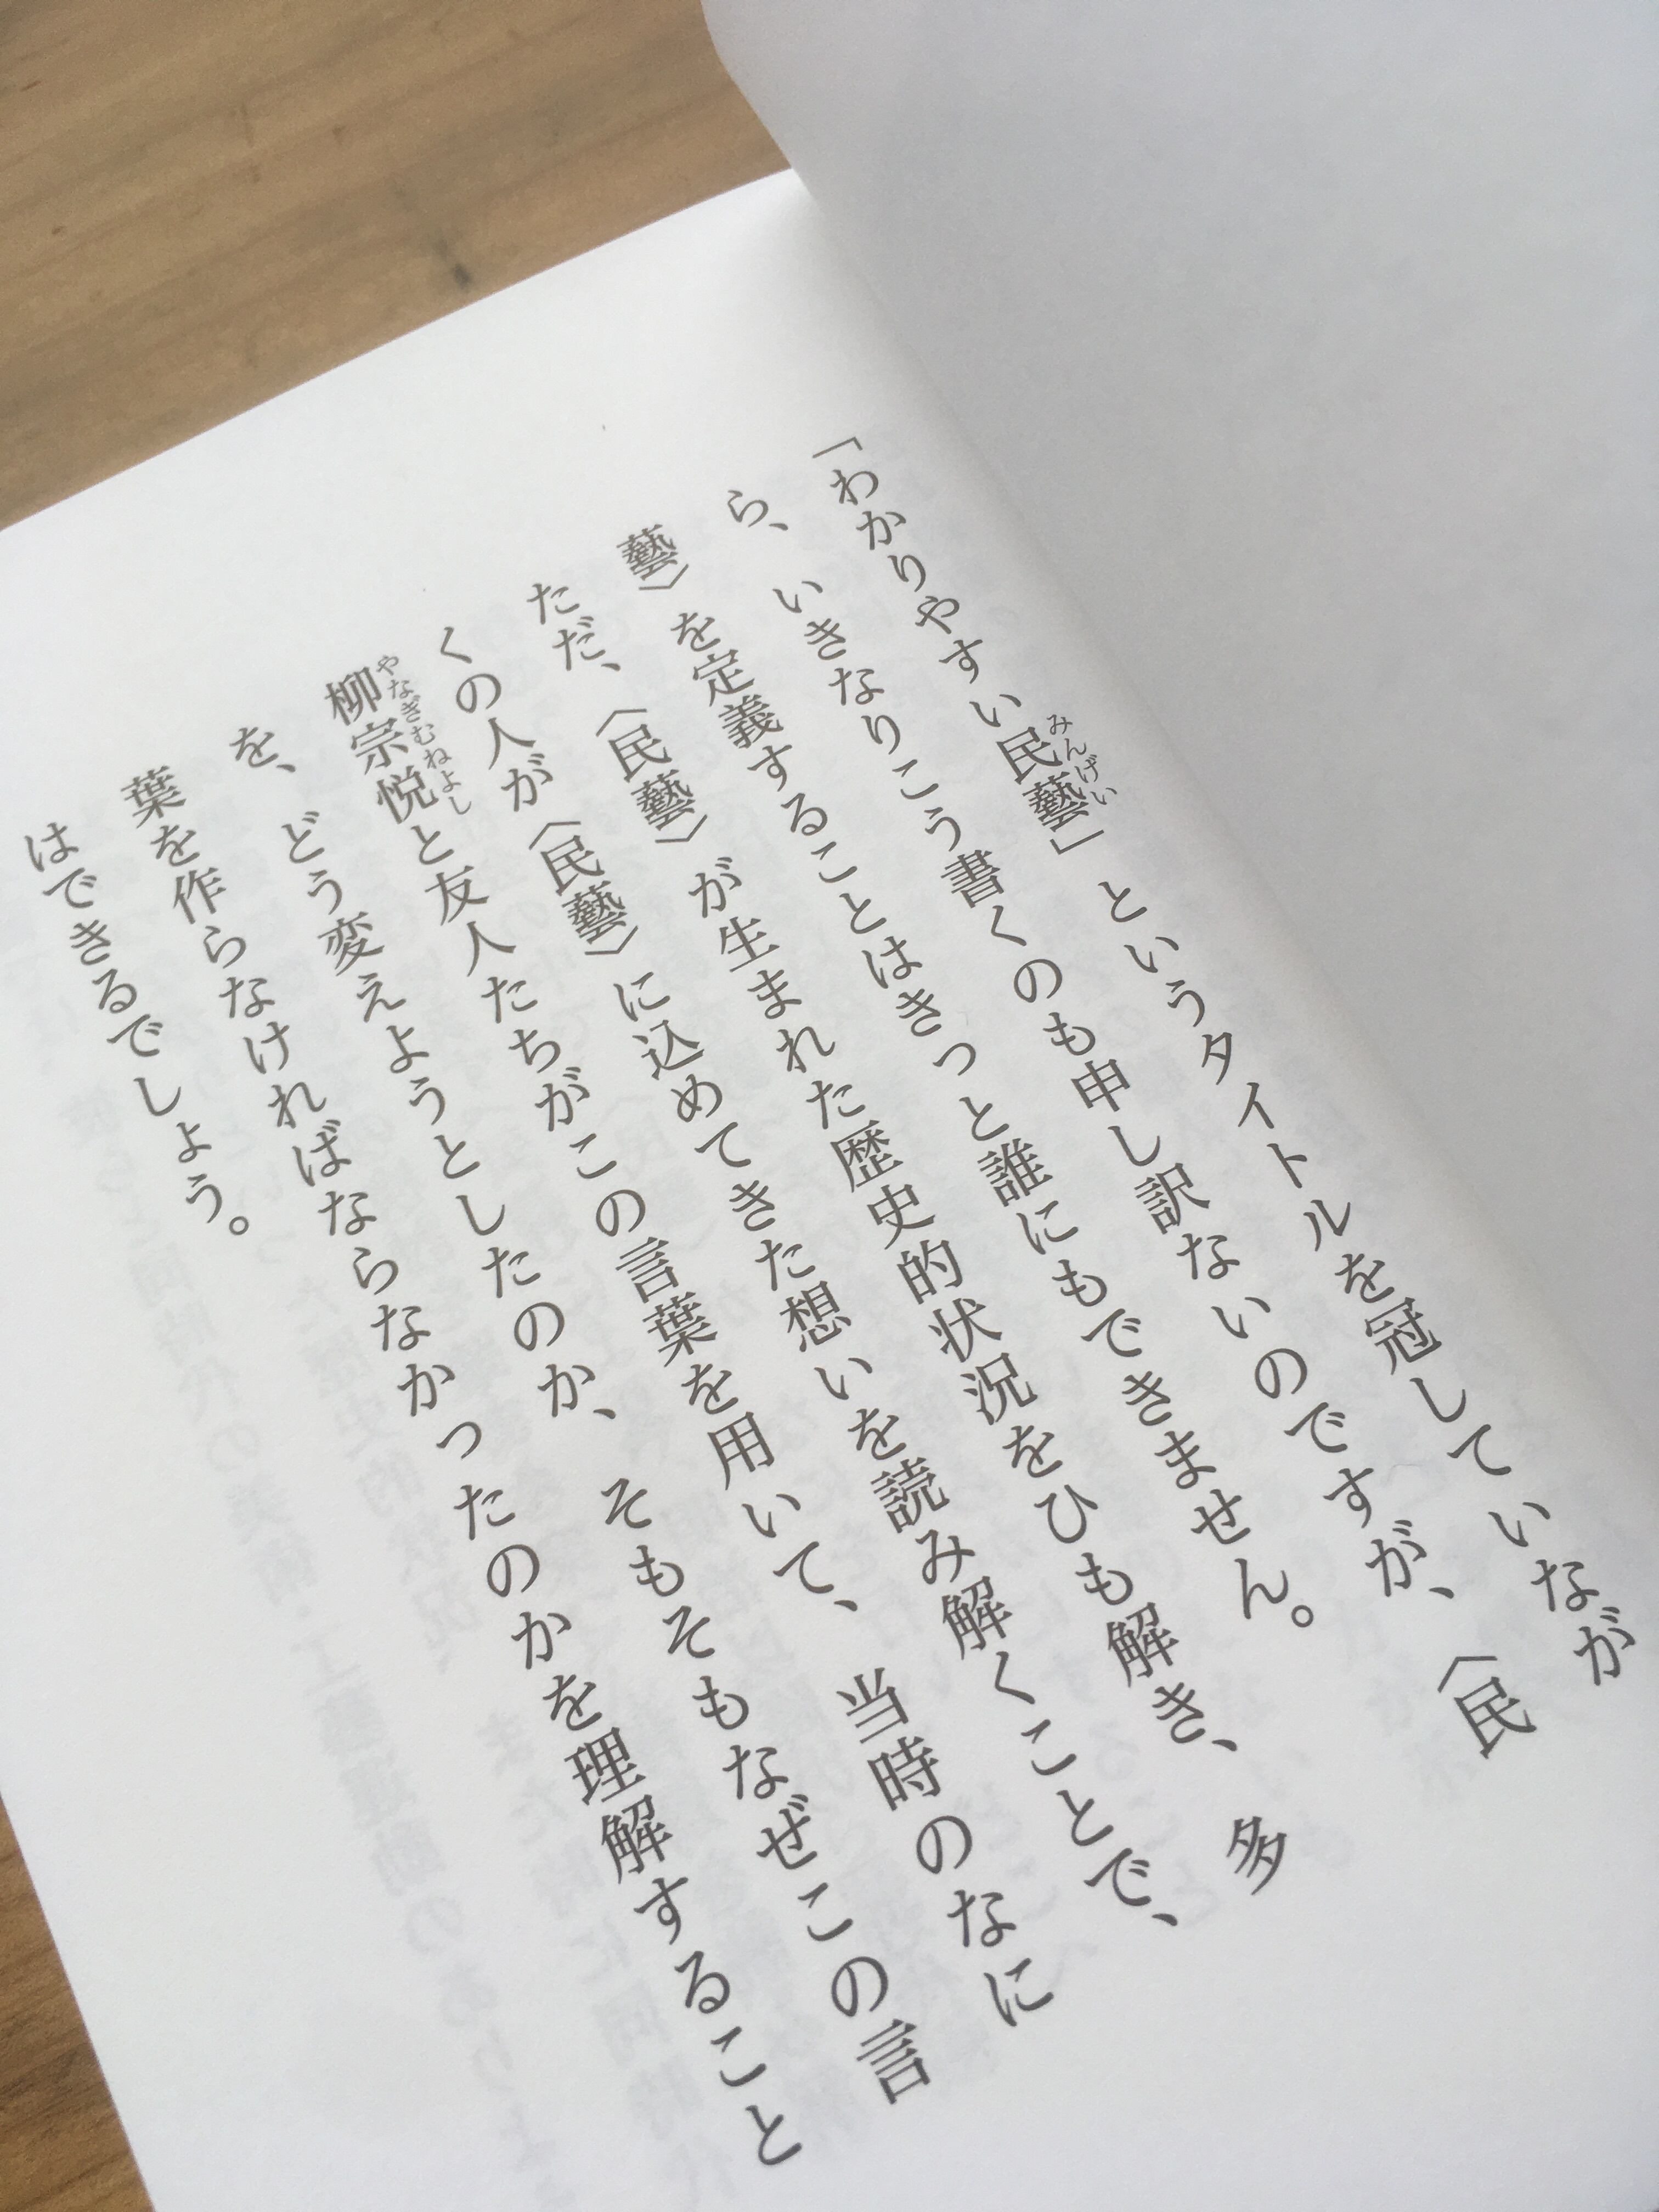 「わかりやすい民藝」というタイトルを冠していなが
ら、いきなりこう書くのも申し訳ないのですが、〈民
藝〉を定義することはきっと誰にもできません。
ただ、〈民藝〉が生まれた歴史的状況をひも解き、多
くの人が〈民藝〉に込めてきた想いを読み解くことで、
柳宗悦と友人たちがこの言葉を用いて、当時のなに
を、どう変えようとしたのか、そもそもなぜこの言
葉を作らなければならなかったのかを理解すること
はできるでしょう。
みんげい
やなぎむねよし